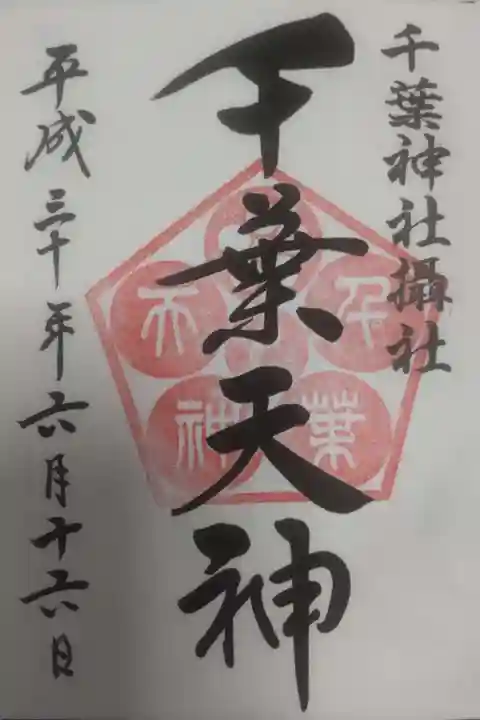 千葉神社攝社
千葉天神
千葉天神
平成三十年六月十六日